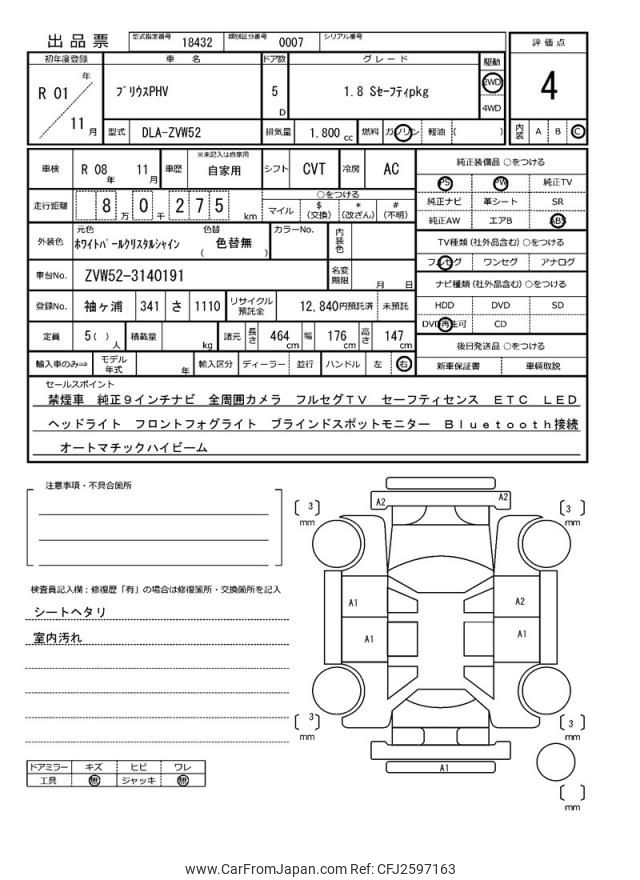 出品票 型式指定番号 18432 類別区分番号 0007 シリアル番号
評価点
4
内装 A B C
初年度登録 車名 ドア数 グレード 駆動
R 01 年 11 月
プリウスPHV 5 D 1.8 Sセーフティpkg 2WD
4WD
型式 DLA-ZVW52 排気量 1,800 cc 燃料 ガソリン 軽油 ( )
車検 R 08 年 11 月 車歴 ※未記入は自家用 自家用 シフト CVT 冷房 AC
走行距離 8 万 0 千 2 7 5 km
○をつける
マイル $ (交換) * (改ざん) # (不明)
外装色 元色 ホワイトパールクリスタルシャイン 色替 ( 色替無 ) カラーNo. 内装色
車台No. ZVW52-3140191 名変期限 月 日
登録No. 袖ヶ浦 341 さ 1110 リサイクル預託金 12,840円預託済 未預託
定員 5( ) 人 積載量 kg 諸元 長さ 464 cm 幅 176 cm 高さ 147 cm
輸入車のみ⇒ モデル年式 年 輸入区分 ディーラー 並行 ハンドル 左 右
純正装備品 ○をつける
PS PW 純正TV
純正ナビ 革シート SR
純正AW エアB ABS
TV種類(社外品含む) ○をつける
フルセグ ワンセグ アナログ
ナビ種類(社外品含む) ○をつける
HDD DVD SD
DVD再生可 CD
後日発送品 ○をつける
新車保証書 車輌取説
セールスポイント
禁煙車 純正9インチナビ 全周囲カメラ フルセグTV セーフティセンス ETC LED
ヘッドライト フロントフォグライト ブラインドスポットモニター Bluetooth接続
オートマチックハイビーム
注意事項・不具合箇所
検査員記入欄:修復歴「有」の場合は修復箇所・交換箇所を記入
シートヘタリ
室内汚れ
ドアミラー キズ ヒビ ワレ
工具 無 ジャッキ 無
A2 A2
[ 3 ] mm [ 3 ] mm
A1 A2
A1 A1
[ 3 ] mm [ 3 ] mm
A1
[ ] mm
www.CarFromJapan.com Ref: CFJ2597163